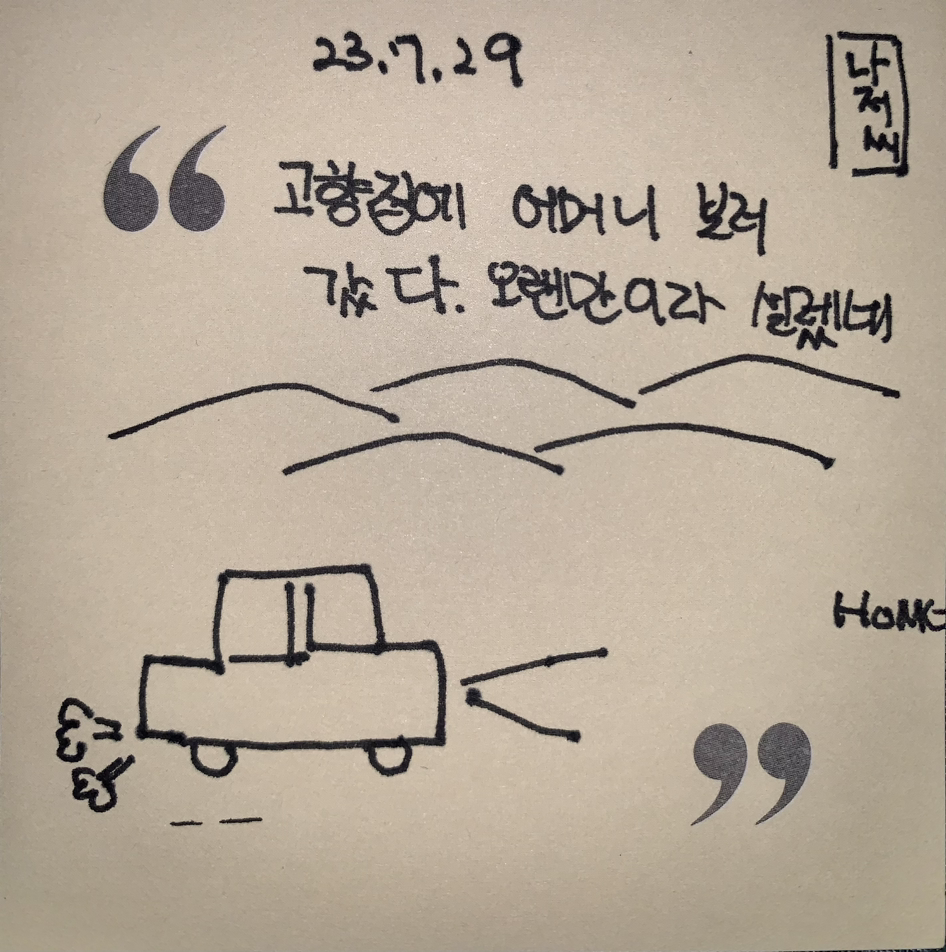 23.7.29
나저씨
고향집에 어머니 보러
갔다. 오랜만이라 설렜네
HOME